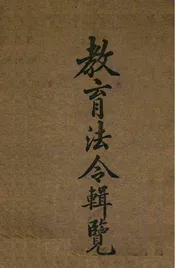 教育法令輯覽